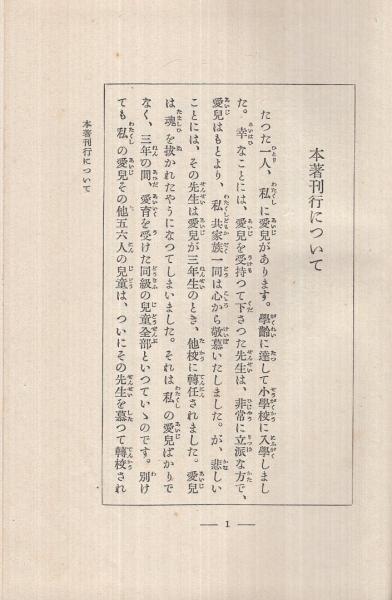 本著刊行について
たつた一人、私に愛兒があります。學齡に達して小學校に入學しまし
た。幸なことには、愛兒を受持つて下さつた先生は、非常に立派な方で、
愛兒はもとより、私共家族一同は心から敬慕いたしました。が、悲しい
ことには、その先生は愛兒が三年生のとき、他校に轉任されました。愛兒
は魂を拔かれたやうになつてしまいました。それは私の愛兒ばかりで
なく、三年の間、愛育を受けた同級の兒童全部といつていゝのです。別け
ても私の愛兒その他五六人の兒童は、ついにその先生を慕つて轉校され
本著刊行について
— 1 —